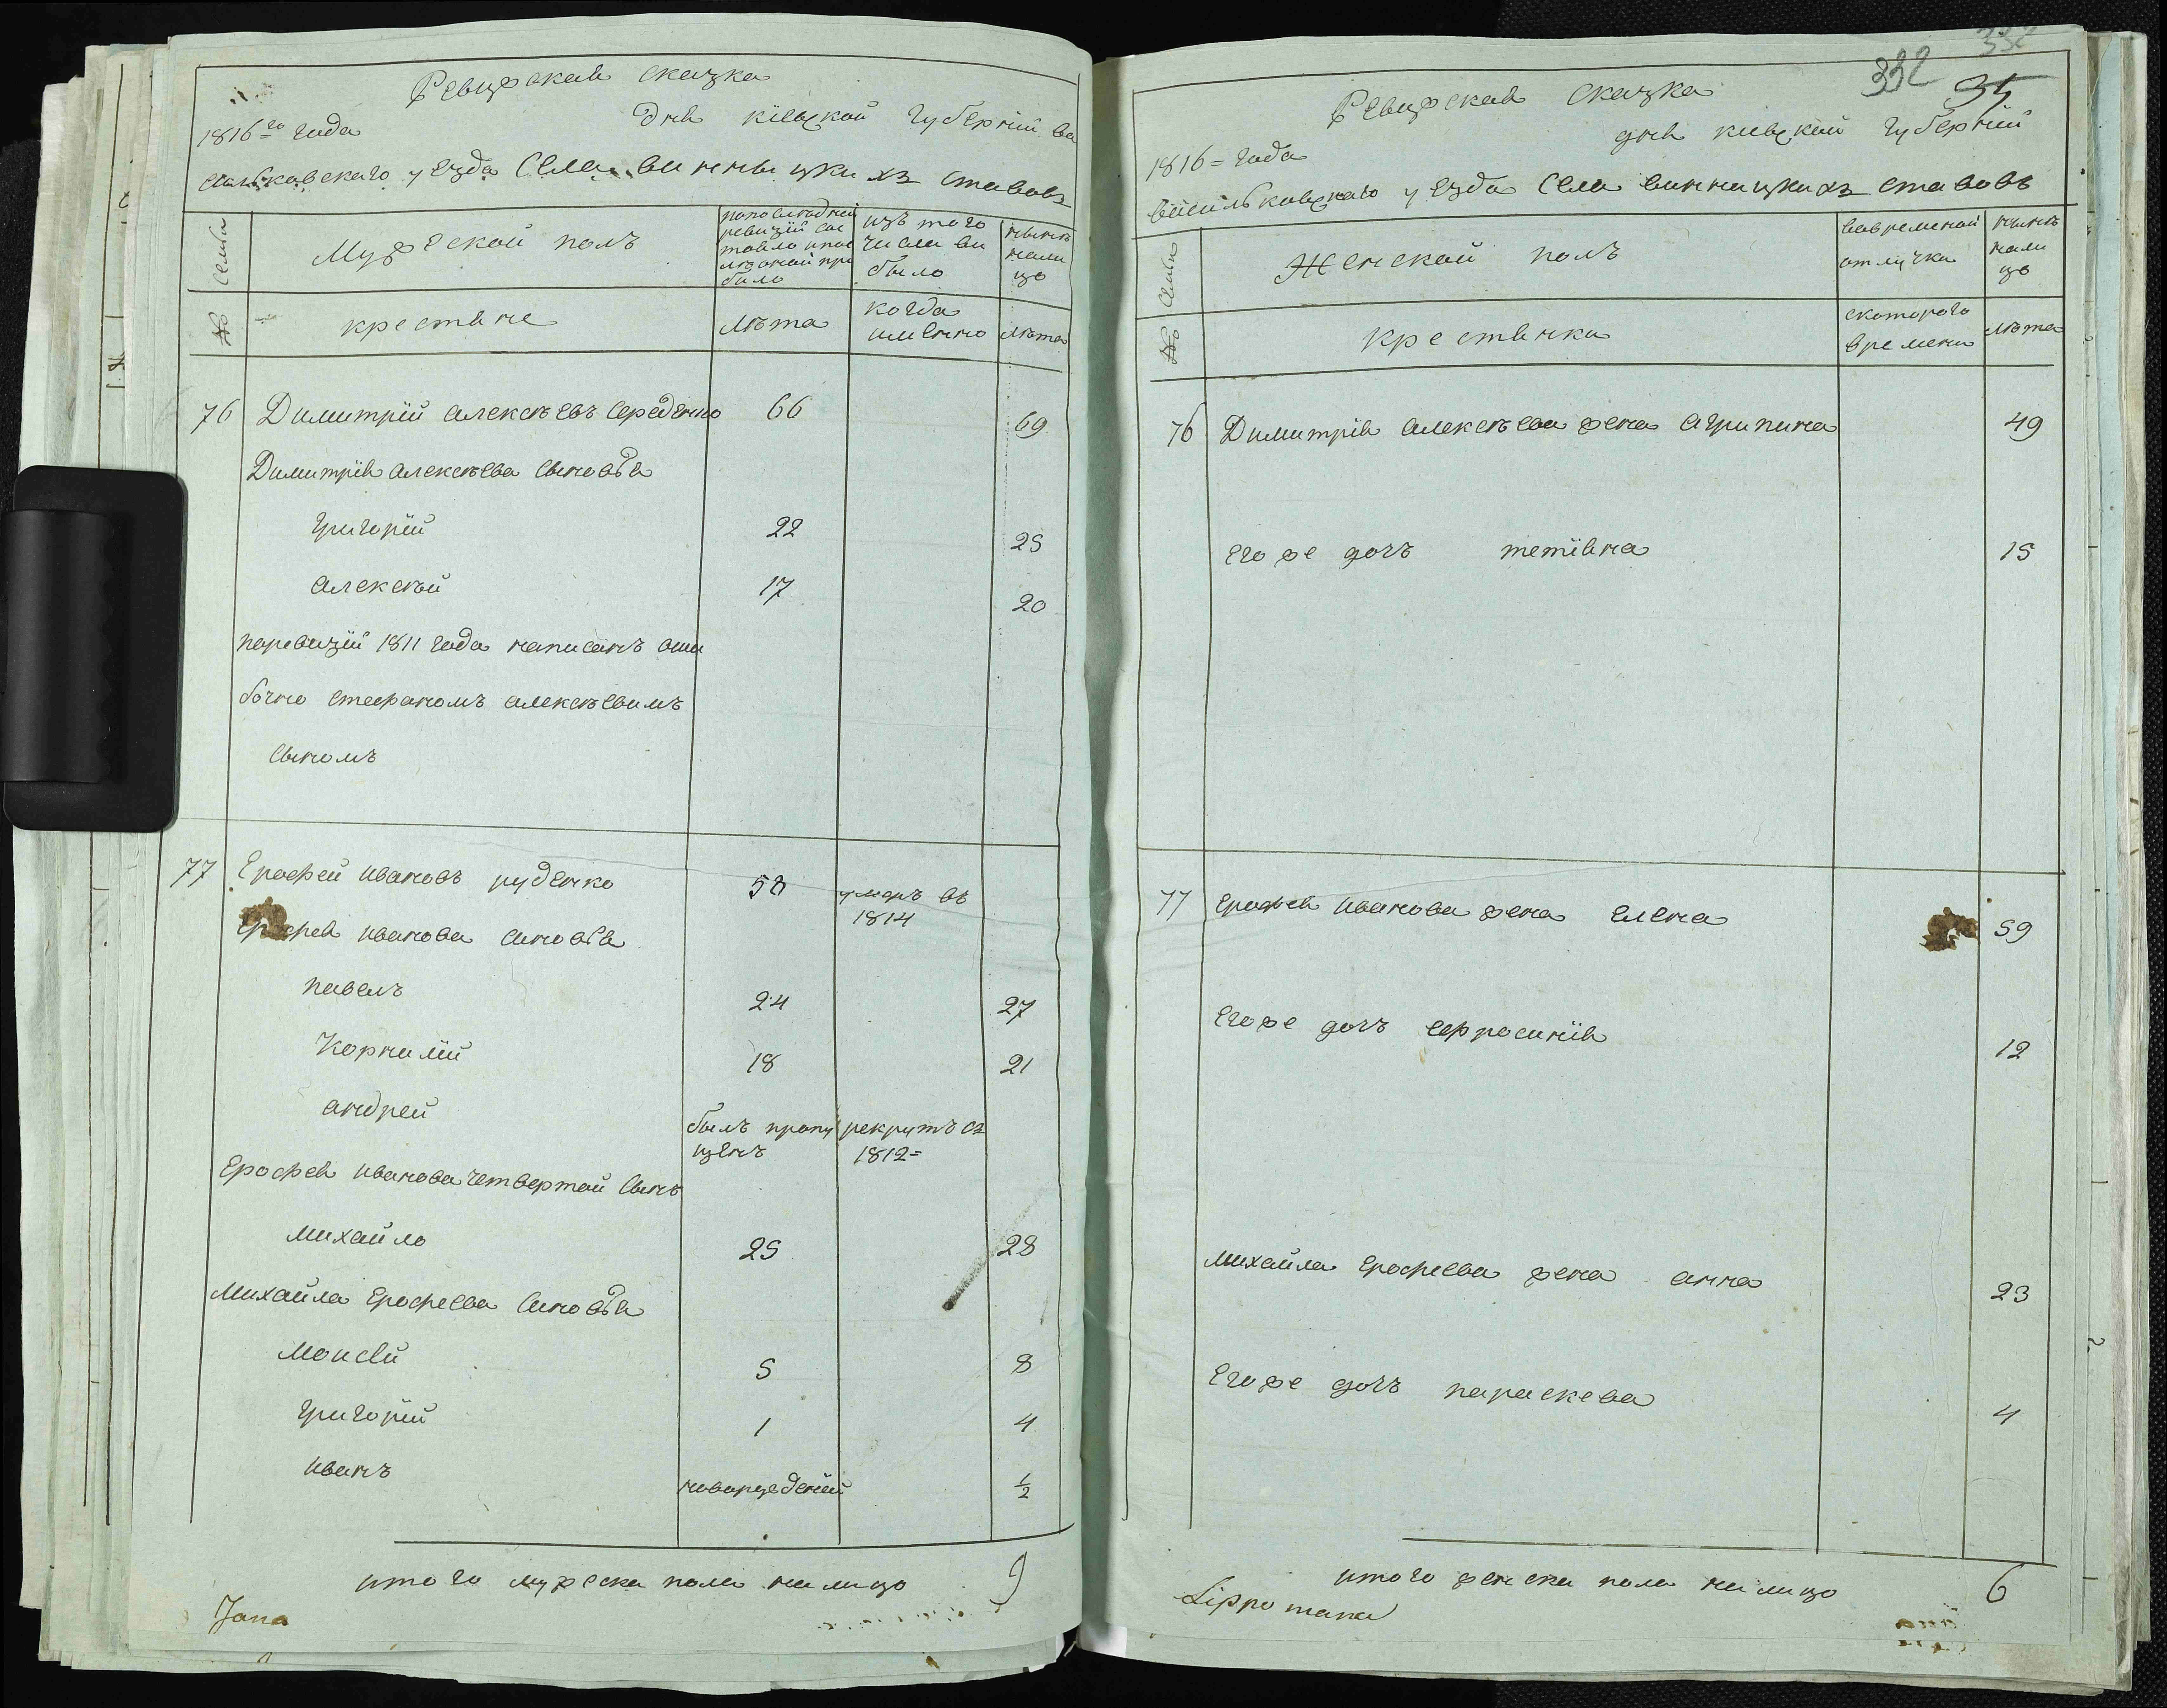 Ревизская сказка
1816го года Дня кіевской губерніи ва
сильковского уезда Села винницкихъ ставовъ
Семьи
Мужеской полъ
попоследней
ревизіи сос
тояло ипос
ле оной при
было
изъ того
числа вы
было
нынѣ
нали
цо
№
крестяне
лѣта
когда
именно
лѣта
76 Димитрій алексѣевъ середенко 66 69
Димитрія алексѣева сыновья
григорій 22 25
алексѣй 17 20
поревизіи 1811 года написанъ оши
бочно стефаномъ алексѣевимъ
сыномъ
77 Ерофей ивановъ руденко 58 умеръ въ
1814
Ерофея иванова синовья
павелъ 24 27
Корнилій 18 21
андрей былъ пропу рекрутъ съ
щенъ 1812=
Ерофея иванова четвертой сынъ
михайло 25 28
михайла Ерофеева синовья
моисей 5 8
григорій 1 4
иванъ новорожденій 1/2
итого мужеска пола налицо 9
Jana
332
35
Ревизская сказка
1816= года дня киевской губерніи
васильковского уезда Села винницкихъ ставовъ
Семьи
Женской полъ
вовременой
отлучки
нынѣ
нали
цо
№
крестянки
скоторого
времени
лѣта
76 Димитрія алексѣева жена агрипина 49
его же дочъ тетіяна 15
77 Ерофея иванова жена елена 59
Его же дочъ ефросинія 12
михайла Ерофеева жена анна 23
Его же дочъ параскева 4
итого женска пола налицо 6
Lippomana